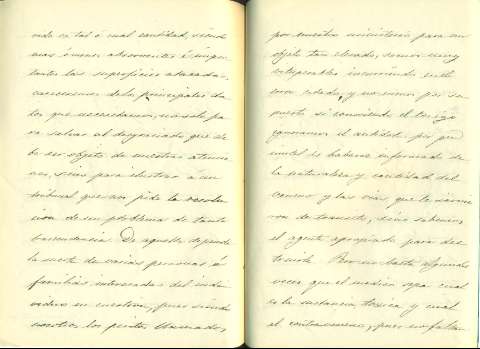 nada en tal ó cual cantidad, siendo
mas ó menos absorventes é impor
tantes las superficies atacadas,
careceremos de los principales da
tos que necesitamos, no solo pa
ra salvar al desgraciado que de
be ser objeto de nuestras atencio
nes, sino para ilustrar á un
tribunal que nos pide la resolu
cion de un problema de tanta
trascendencia. De aquella depende
la suerte de varias personas ó
familias interesadas del indi
viduo en cuestion, pues siendo
nosotros los peritos llamados,
por nuestro ministerio para un
objeto tan elevado, somos muy
culpables
y no menos por su
puesto si conociendo el tóxico
ignoramos el antídoto; por que
inutil es habernos informado de
la naturaleza y cantidad del
veneno y las vias que le sirvie
ron de transito, sino sabemos
el agente apropiado para des
truirle. Pero no basta algunas
veces que el medico sepa cual
es la sustancia toxica y cual
el contraveneno, pues